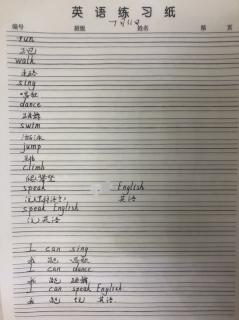 英语练习纸
编号 班级 姓名 第 页
run
walk
走路
sing
唱歌
dance
跳舞
swim
游泳
jump
跳
climb
爬
speak English
说 英语
speak English
说 英语
I can sing
我 能 唱歌
I can dance
我 能 跳舞
I can speak English
我 能 说 英语